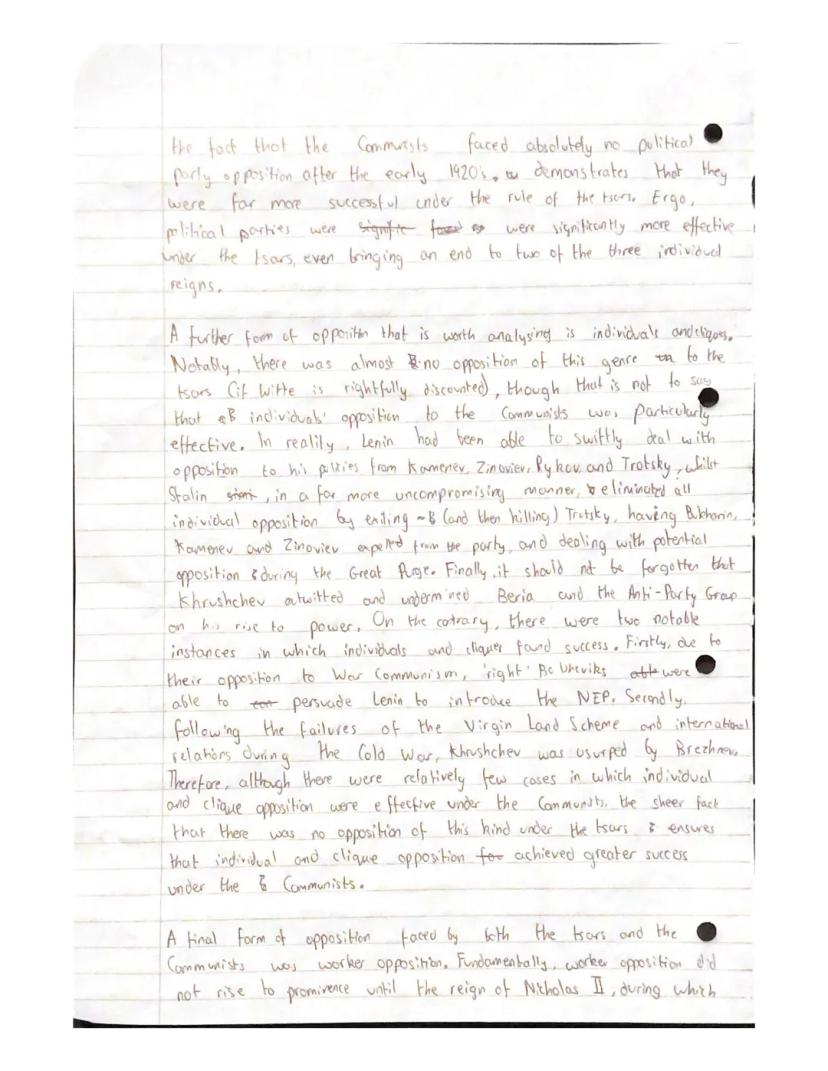 the fact that the Communists faced absolutely no political
party opposition after the early 1920's, demonstrates that they
were far more successful under the rule of the tsars. Ergo,
political parties were signific found were significantly more effective
under the tsars, even bringing an end to two of the three individual
reigns.
A further form of opposition that is worth analysing is individuals and cliques.
Notably, there was almost no opposition of this genre to the
tsars (if Witte is rightfully discounted), though that is not to say
that individuals' opposition to the Communists was particularly
effective. In reality, Lenin had been able to swiftly deal with
opposition to his policies from Kamenev, Zinoviev, Rykov and Trotsky, whilst
Stalin, in a far more uncompromising manner, eliminated all
individual opposition by exiling (and then killing) Trotsky, having Bukharin,
Kamenev and Zinoviev expelled from the party, and dealing with potential
opposition during the Great Purge. Finally, it should not be forgotten that
Khrushchev outwitted and undermined Beria and the Anti-Party Group
on his rise to power. On the contrary, there were two notable
instances in which individuals and cliques found success. Firstly, due to
their opposition to War Communism, 'right' Bolsheviks able were
able to persuade Lenin to introduce the NEP. Secondly,
following the failures of the Virgin Land Scheme and international
relations during the Cold War, Khrushchev was usurped by Brezhnev.
Therefore, although there were relatively few cases in which individual
and clique opposition were effective under the Communists, the sheer fact
that there was no opposition of this kind under the tsars ensures
that individual and clique opposition for achieved greater success
under the Communists.
A final form of opposition faced by both the tsars and the
Communists was worker opposition. Fundamentally, worker opposition did
not rise to prominence until the reign of Nicholas II, during which